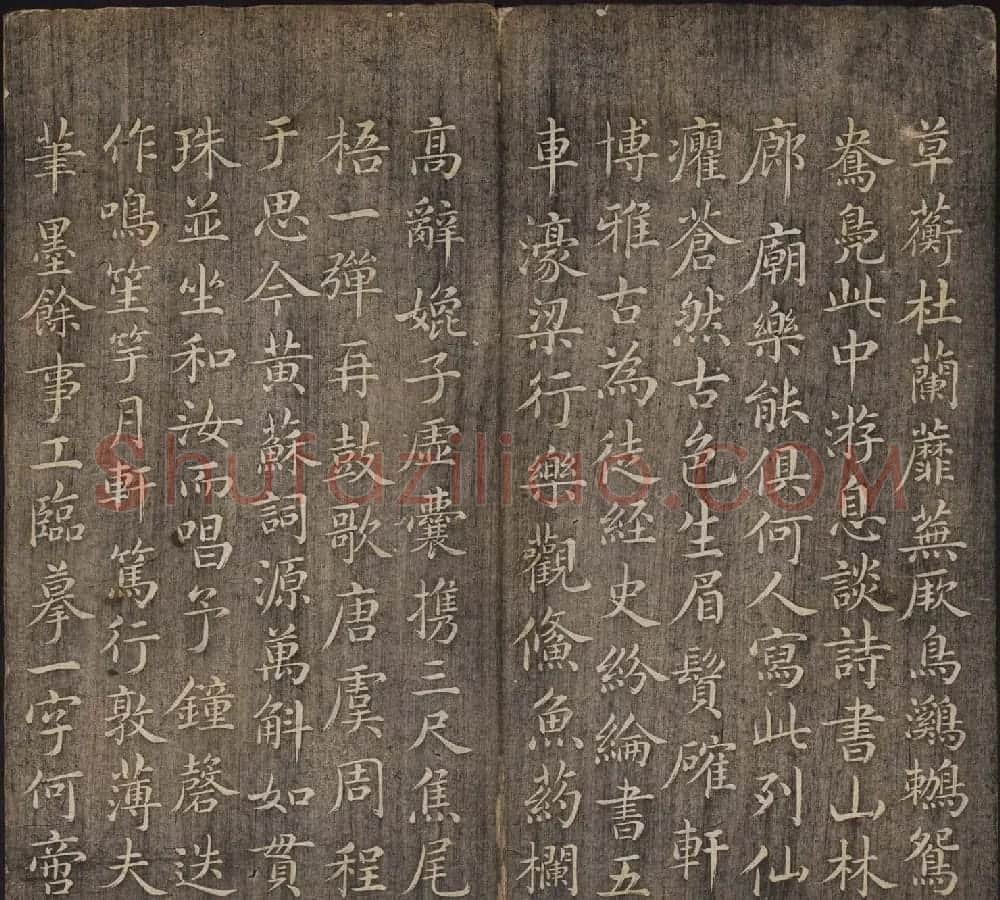 草蘅杜蘭蘼蕪厥鳥鸂鶒鴛
鴦鳧此中游息談詩書山林
廊廟樂能俱何人寫此列仙
癯蒼然古色生眉鬢確軒
博雅古為徒經史紛綸書五
車濠梁行樂觀儵魚葯欄
高辭娩子虛囊携三尺焦尾
梧一彈再鼓歌唐虞周程
于思今黃蘇詞源萬斛如貫
珠並坐和汝而唱予鐘磬迭
作鳴笙竽月軒篤行敦薄夫
筆墨餘事工臨摹一字何啻
Shufaziliao.COM